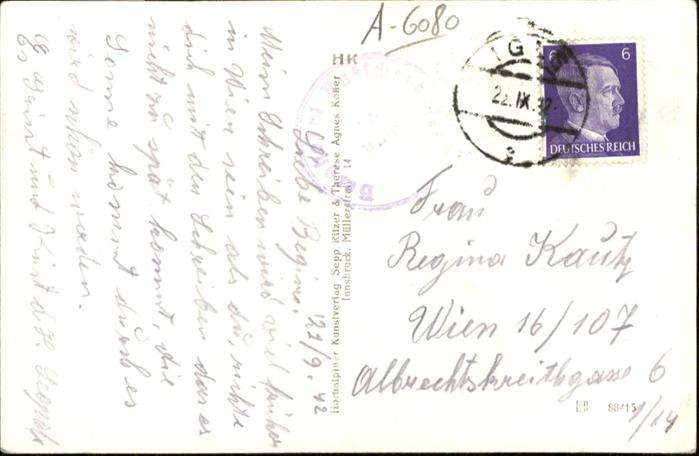 A-6080
Liebe Regina! 22/9. 42
Mein Schreiben wird viel früher
in Wien sein als du, richte
dich mit den Schreiben das es
nicht zu spät kommt, die
Sonne kommt durch es
wird schön werden.
Es grüßt und küsst d.
HK
Hochalpiner Kunstverlag Sepp Kilzer & Therese Agnes Koller
Innsbruck, Müllerstraße 14
IGLS
22.IX.42
6 6
DEUTSCHES REICH
Frau
Regina Kautz
Wien 16/107
Albrechtskreithgasse 6
1/14
88415